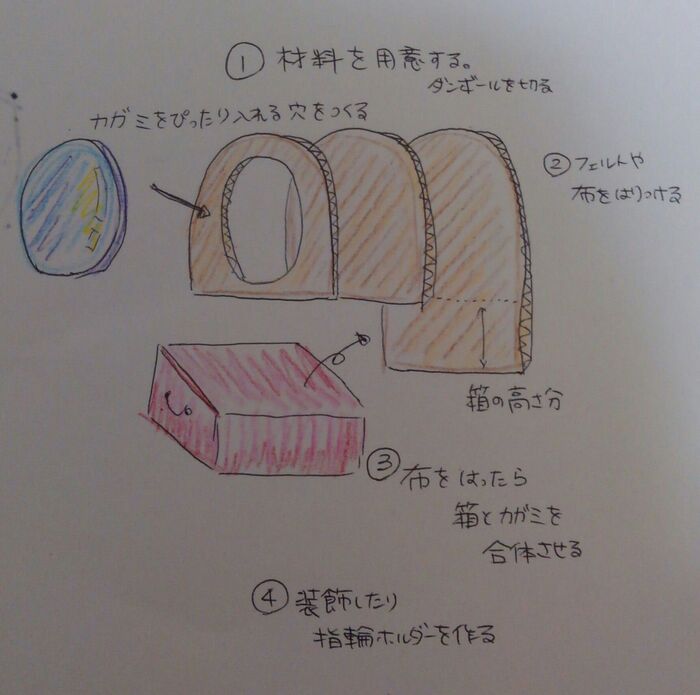 ① 材料を用意する。
ダンボールを切る
カガミをぴったり入れる穴をつくる
② フェルトや
布をはりつける
箱の高さ分
③ 布をはったら
箱とカガミを
合体させる
④ 装飾したり
指輪ホルダーを作る